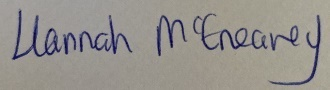 Hannah McEneaney